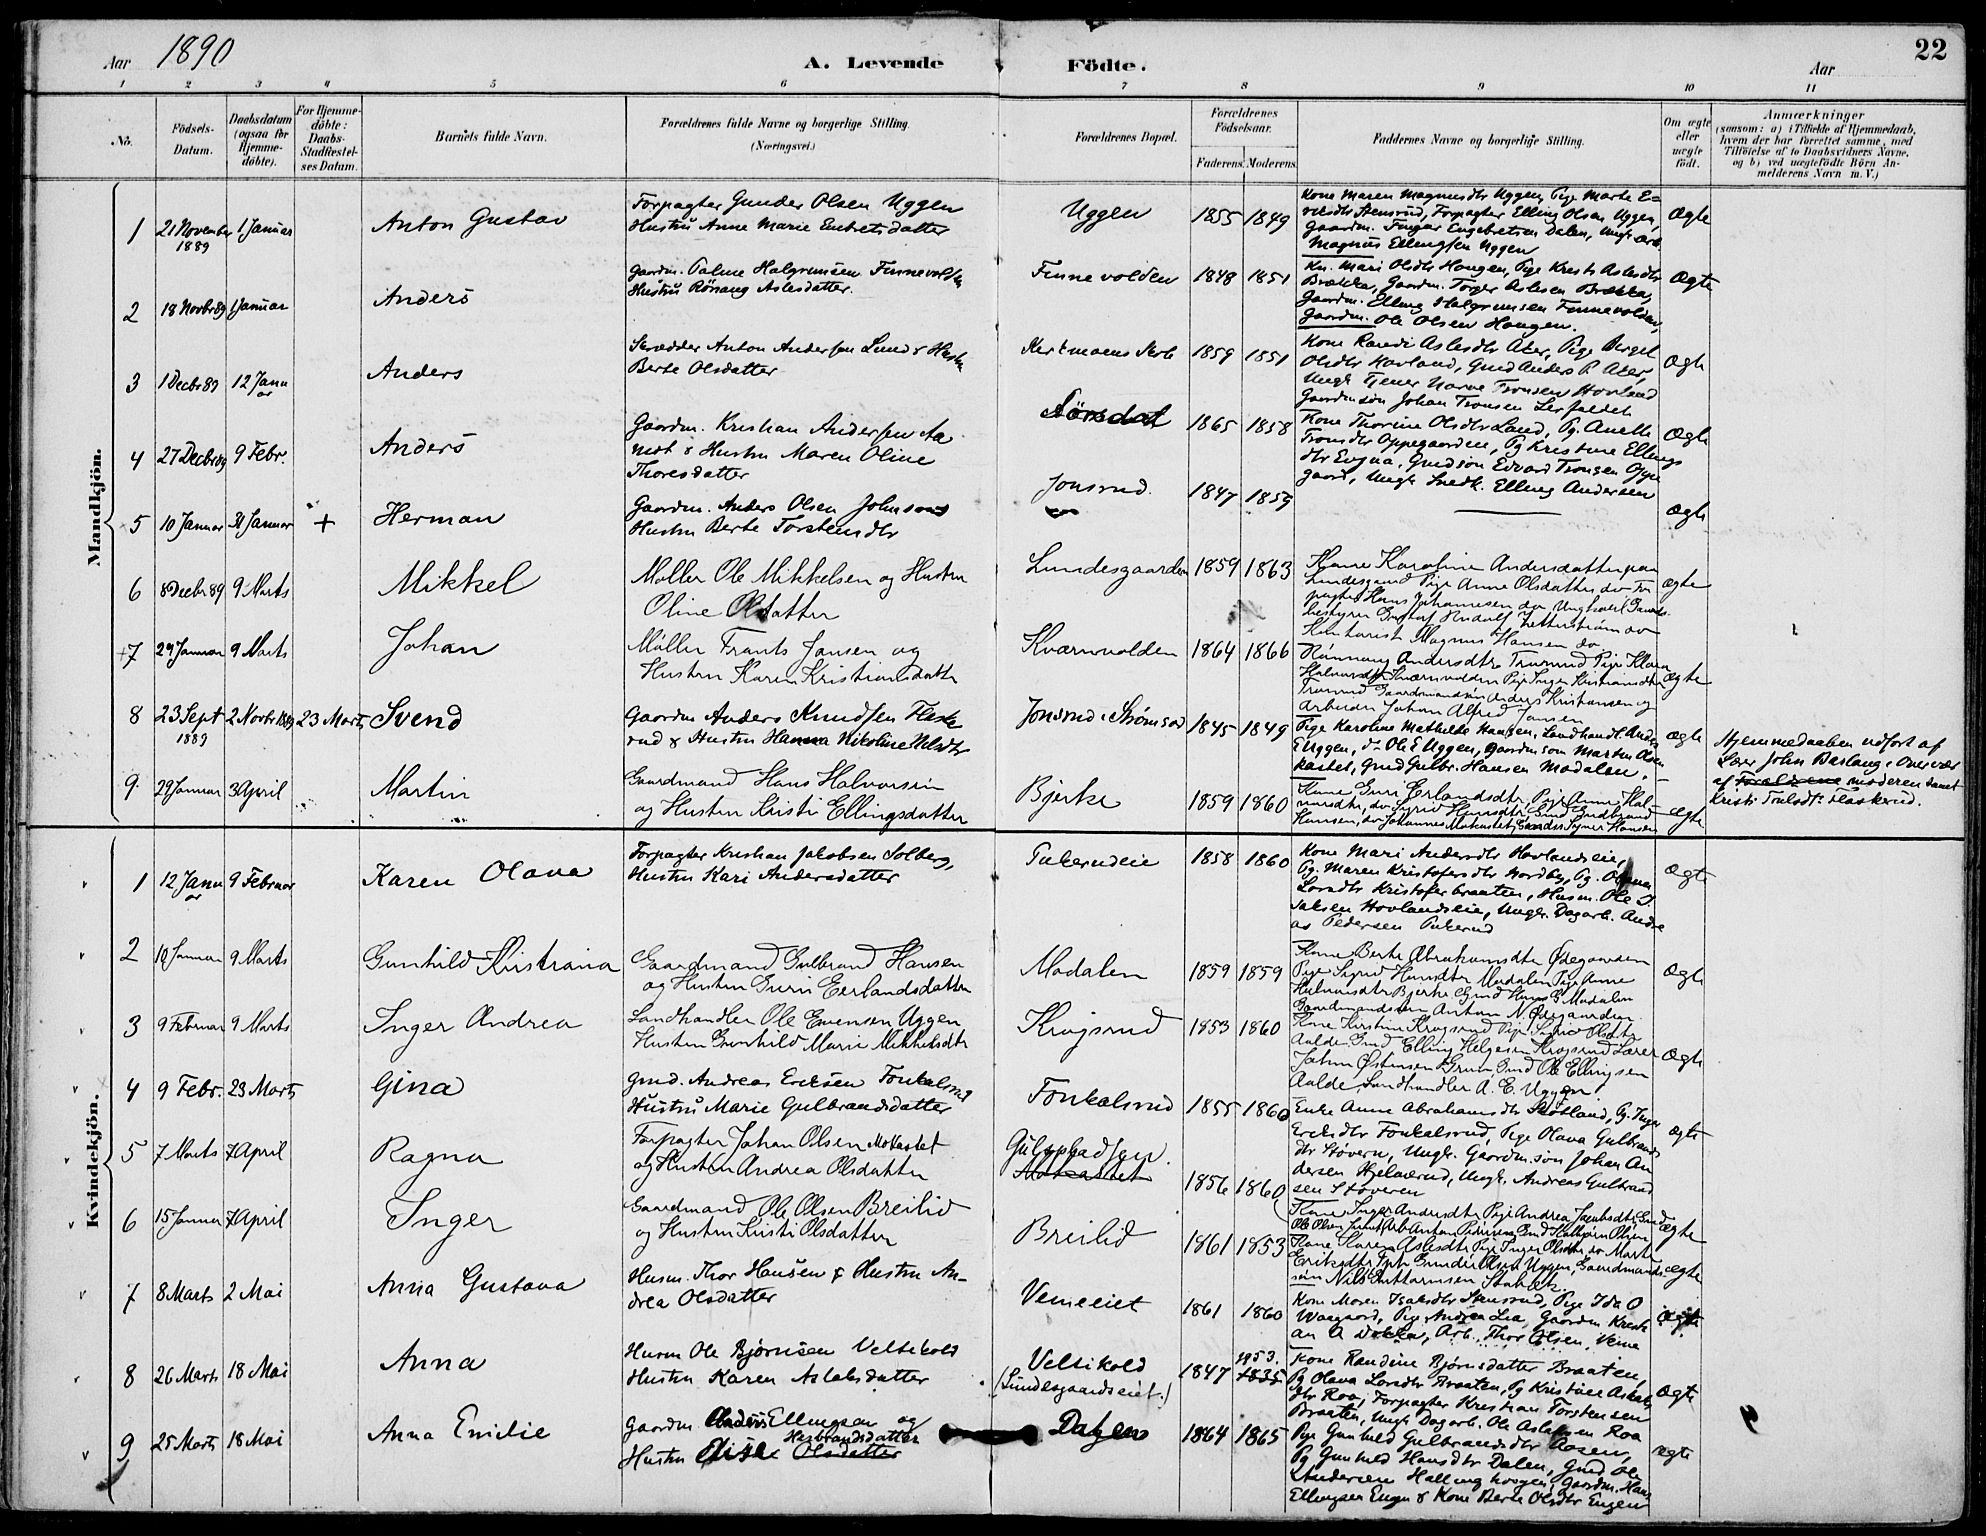 Aar 1890
A. Levende Födte.
Aar
22
1 2 3 4 5 6 7 8 9 10 11
No.
Födsels-Datum.
Daabsdatum (ogsaa for Hjemme-döbte).
For Hjemme-döbte: Daabs-Stadfæstel-ses Datum.
Barnets fulde Navn.
Forældrenes fulde Navne og borgerlige Stilling. (Næringsvei.)
Forældrenes Bopæl.
Forældrenes Födselsaar.
Faderens. Moderens.
Faddernes Navne og borgerlige Stilling.
Om ægte eller uægte födt.
Anmærkninger
(saasom: a) i Tilfælde af Hjemmedaab, hvem der har forrettet samme, med Tilföielse af to Daabsvidners Navne, og b) ved uægtefödte Börn An-melderens Navn m. V.)
Mandkjön.
1 21 November 1889 1 Januar Anton Gustav
Forpagter Gunder Olsen Uggen
Hustru Anne Marie Enbretsdatter
Uggen 1855 1849
Kone Maren Magnusdtr Uggen, Pige Marte E=
riksdtr Stensrud, Forpagter Elling Olsen Uggen,
Gaardm. Engebretsen Dalen, Ungk. arb.
Magnus Ellingsen Uggen
Ægte
2 18 Novbr 89 1 Januar Anders
Gaardm. Palme Halgrimsen Finnevolden
Hustru Rönnaug Aslesdatter.
Finnevolden 1848 1851
Kn. Mari Olsdtr Haugen, Pige Kristi Aslesdtr
Brække, Gaardm. Torger Aslesen Brække,
Gaardm. Elling Halgrimsen Finnevolden,
Gaardm. Ole Olsen Haugen.
Ægte
3 1 Decbr 89 12 Januar Anders
Skrædder Anton Andersen Lund & Hustru
Berte Olsdatter
1859 1851
Kone Randi Aslesdtr Ater, Pige Berget
Olsdtr Hovland, Gmd Anders P. Ater,
Ungk Tjener Narve Tronsen Hovland
Gaardmsön Johan Tronsen Lerfaldet
Ægte
4 27 Decbr 89 9 Febr. Anders
Gaardm. Kristian Andersen
& Hustru Maren Oline
Thoresdatter
1865 1858
Kone Thorine Olsdtr Lund, Pg. Anette
Tronsdtr Oppegaarden, Pg Kristine Ellings
dtr Evjua, Gmdsön Edvard Tronsen Oppe
gaard, Ungk Snedk. Elling Andersen
Ægte
5 10 Januar 31 Januar + Herman
Gaardm. Anders Olsen Johnsrud
Hustru Berte Torstensdtr
Jonsrud. 1847 1859
Ægte
6 8 Decbr 89 9 Marts Mikkel
Møller Ole Mikkelsen og Hustru
Oline Olsdatter
Lundesgaarden 1859 1863
Kone Karoline Andersdatter paa
Lundesgaard Pige Anne Olsdatter do For
pagter Hans Johannesen do Ungkarl Brænde
bestyrer Gustaf Rudolf Zetterstrøm do
Kontorist Magnus Hansen do
ægte
7 29 Januar 9 Marts Johan
Møller Frants Jansen og
Hustru Karen Kristiansdatter
Kværnvolden 1864 1866
Rønnaug Andersdtr Tronrud Pige Klara
Halvorsdtr Kværnvolden Pige Inger Kristiansdtr
Tronrud Gaardmandsøn Anders Kristiansen og
Arbeider Johan Alfred Jansen
Ægte
8 23 Sept 1889 2 Novbr 1889 23 Marts Svend
Gaardm Anders Knudsen Flaske
rud & Hustru Hanna Nikoline Nilsdtr
Jonsrud i Strømsod 1845 1849
Pige Karoline Mathilde Haugen, Landhandl. Anders
E Uggen, do Ole E Uggen, Gaardm.søn Martin Olsen
Kastet, Gmd Gulbr. Hansen Modalen.
ægte
Hjemmedaaben udført af
Lærer John Baslaug i Overvær
af Forældrene moderen samt
Kristi Flaskerud.
9. 29 Januar 3 April Martin
Gaardmand Hans Halvorsen
og Hustru Kristi Ellingsdatter
Bjerke 1859 1860
Kone Guri Erlandsdtr, Pige Anne Hal-
vorsdtr, do Sigrid Hansdtr, Gmd Gulbrand
Hansen, do Johannes
ægte
Kvindekjön.
1 12 Januar 9 Februar Karen Olava
Forpagter Kristian Jakobsen Solberg,
Hustru Kari Andersdatter
Pukerudeie 1858 1860
Kone Mari Andersdtr Hovlandseie,
Pg. Maren Kristofersdtr Nordby, Pg.
Larsdtr Kristoferbraaten, Husm. Ole I
saksen Hovlandseie, Ungk. Dagarb. Andre
as Pedersen Pukerud
Ægte
2 10 Januar 9 Marts Gunhild Kristiana
Gaardmand Gulbrand Hansen
og Hustru Guri Eerlandsdatter
Modalen 1859 1859
Kone Berte Abrahamsdtr Ødegaarden
Pige Sigrid Hansdtr Modalen Pige Anne
Halvorsdtr Bjerke Gmd Hans G Modalen
Gaardmandssøn Anton N Ødegaarden
ægte
3 9 Februar 9 Marts Inger Andrea
Landhandler Ole Evensen Uggen
Hustru Gunhild Marie Mikkelsdtr
Krogsrud 1853 1860
Kone Kirstine Krogsrud Pige Sigrid Olsdtr
Aalde Gmd Elling Helgesen Krogsrud Lærer
Johan Østensen Grimm Gmd Ole Ellingsen
Aalde Landhandler A. E. Uggen.
Ægte
4 9 Febr. 23 Marts Gina
Gmd. Andreas Eriksen Fonkalsrud
Hustru Marie Gulbrandsdatter
Fonkalsrud 1855 1860
Enke Anne Abrahamsdtr Skotland, Pg. Inger
Eriksdtr Fonkalsrud, Pige Olava Gulbrands
dtr Støvern, Ungk. Gaardm.søn Johan An
dersen Hjelmerud, Ungk. Andreas Gulbrand
sen Støveren
ægte
5 7 Marts 7 April Ragna
Forpagter Johan Olsen Mokastet
og Hustru Andrea Olsdatter
Mokastet 1856 1860
Kone Inger Andersdtr Pige Andrea Jacobsdtr Gmd
Ole Olsen
ægte
6 15 Januar 7 April Inger
Gaardmand Ole Olsen Breilid
og Hustru Kristi Olsdatter
Breilid 1861 1853
Kone Karen Aslesdtr Pige Inger Olsdtr do Marte
Eriksdtr Fpt Gunder Olsen Uggen, Gaardmands
søn Nils Guttormsen
ægte
7 8 Marts 2 Mai Anna Gustava
Husm. Thor Hansen & Hustru An-
drea Olsdatter
Vemeeiet 1861 1860
Kone Maren Isaksdtr Stensrud, Pige Ida O
Waagaard, Pige Andrea Lia, Gaardm Kristi
an A Dokken, Arb. Thor Olsen, Veme
ægte
8 26 Marts 18 Mai Anna
Husm Ole Bjørnsen Veltikold
Hustru Karen Aslaksdatter
Veltikold
(Lundesgaardseiet.)
1847 1853. 1835
Kone Randine Bjørnsdatter Braaten,
Pg Olava Larsdtr Braaten, Pg Kristine Aslaks
dtr Roa, Forpagter Kristian Torstensen
Braaten, Ungk Dagarb. Ole Aslaksen Roa
Ægte
9 25 Marts 18 Mai Anna Emilie
Gaardm Anders Ellingsen og
Herbrandsdatter
Hustru Elise Olsdatter
Dalen 1864 1865
Pige Gunhild Gulbrandsdtr Aasen,
Pg Gunhild Hansdtr Dalen, Gmd Ole
Andersen Hallingkrogen, Gaardm. Hans
Ellingsen Engen & Kone Berte Olsdtr Engen
ægte